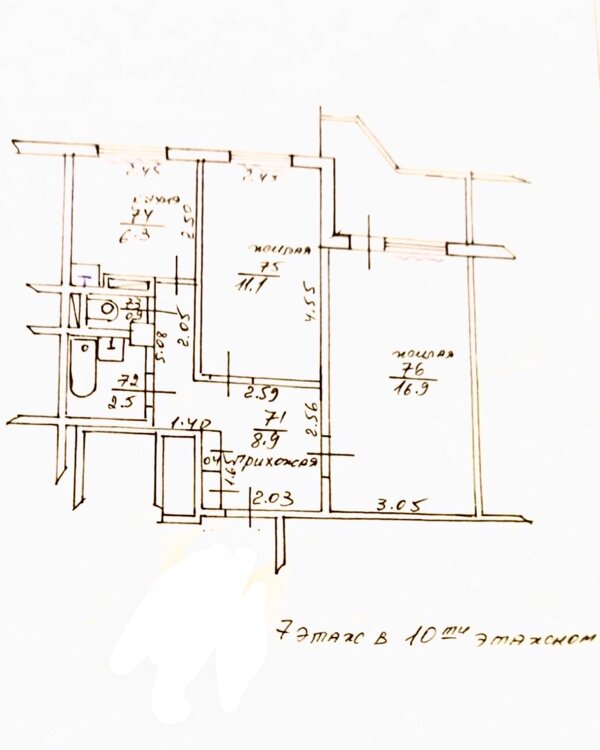 2.45
2.45
кухня
74
6.3
2.50
жилая
75
11.1
4.55
73
2.05
5.08
жилая
76
16.9
72
2.5
2.59
71
8.9
2.56
1.40
прихожая
04
1.65
2.03
3.05
7 этаж в 10ти этажном